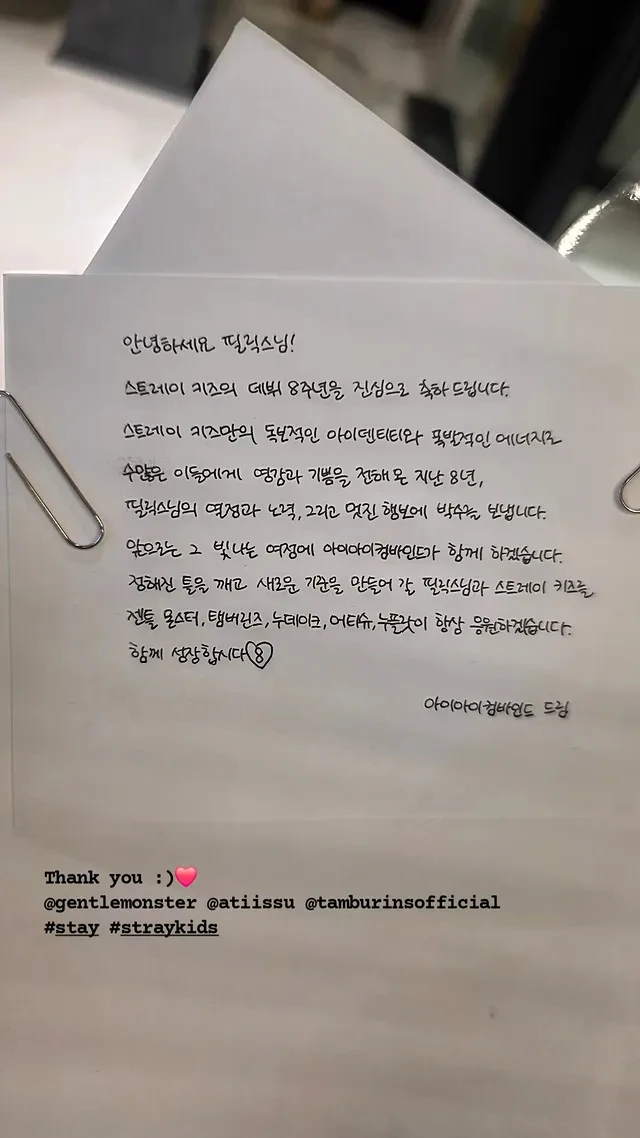 안녕하세요 필릭스님!
스트레이 키즈의 데뷔 8주년을 진심으로 축하드립니다.
스트레이 키즈만의 독보적인 아이덴티티와 폭발적인 에너지로
수많은 이들에게 영감과 기쁨을 전해 온 지난 8년,
필릭스님의 열정과 노력, 그리고 멋진 행보에 박수를 보냅니다.
앞으로는 그 빛나는 여정에 아이아이컴바인드가 함께 하겠습니다.
정해진 틀을 깨고 새로운 기준을 만들어 갈 필릭스님과 스트레이 키즈를
젠틀 몬스터, 탬버린즈, 누데이크, 어티슈, 누플랏이 항상 응원하겠습니다.
함께 성장합시다 8
아이아이컴바인드 드림
Thank you :)❤️
@gentlemonster @atiissu @tamburinsofficial
#stay #straykids